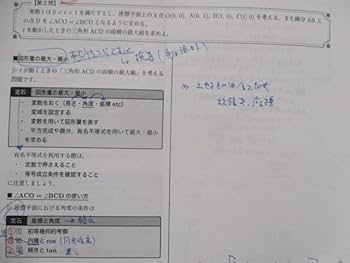 【第2問】
実数 t は 0 < t < 1 を満たすとし，座標平面上の4点 O(0, 0)，A(0, 1)，B(1, 0)，C(t, 0) を考える．また線分 AB 上
の点 D を∠ACO = ∠BCD となるように定める．
t を動かしたときの三角形 ACD の面積の最大値を求めよ．
■図形量の最大・最小
t が動くときの「三角形 ACD の面積の最大値」を考える
問題です．
定石 図形量の最大・最小
・ 変数をおく（長さ・角度・座標 etc）
・ 変域を設定する
・ 変数を用いて図形量を表す
・ 平方完成や微分，有名不等式を用いて最大・最小
を求める
有名不等式を利用する際は，
・ 定数で押さえること
・ 等号成立条件を確認すること
に注意しましょう．
■∠ACO = ∠BCD の使い方
座標平面における角度の条件は
定石 座標と角度
① 初等幾何的考察
② 内積と cos
③ 傾きと tan